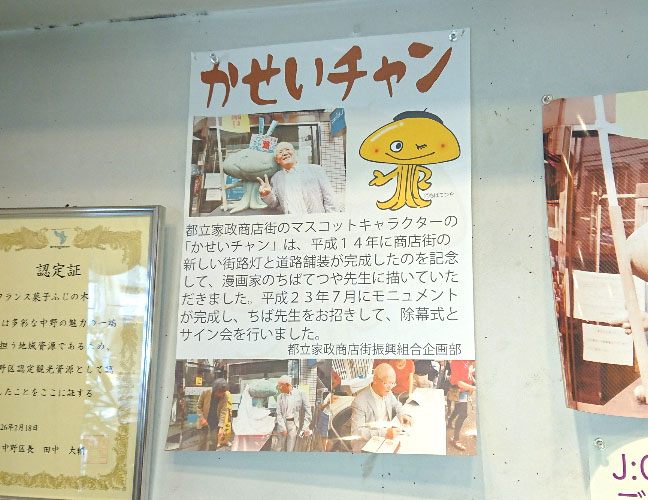 かせいチャン
都立家政商店街のマスコットキャラクターの
「かせいチャン」は、平成14年に商店街の
新しい街路灯と道路舗装が完成したのを記念
して、漫画家のちばてつや先生に描いていた
だきました。平成23年7月にモニュメント
が完成し、ちば先生をお招きして、除幕式と
サイン会を行いました。
都立家政商店街振興組合企画部
認定証
フランス菓子ふじの木
は多彩な中野の魅力の一端
担う地域資源であるため、
野区認定観光資源として認
したことをここに証する
26年3月18日
中野区長 田中 大輔
J: